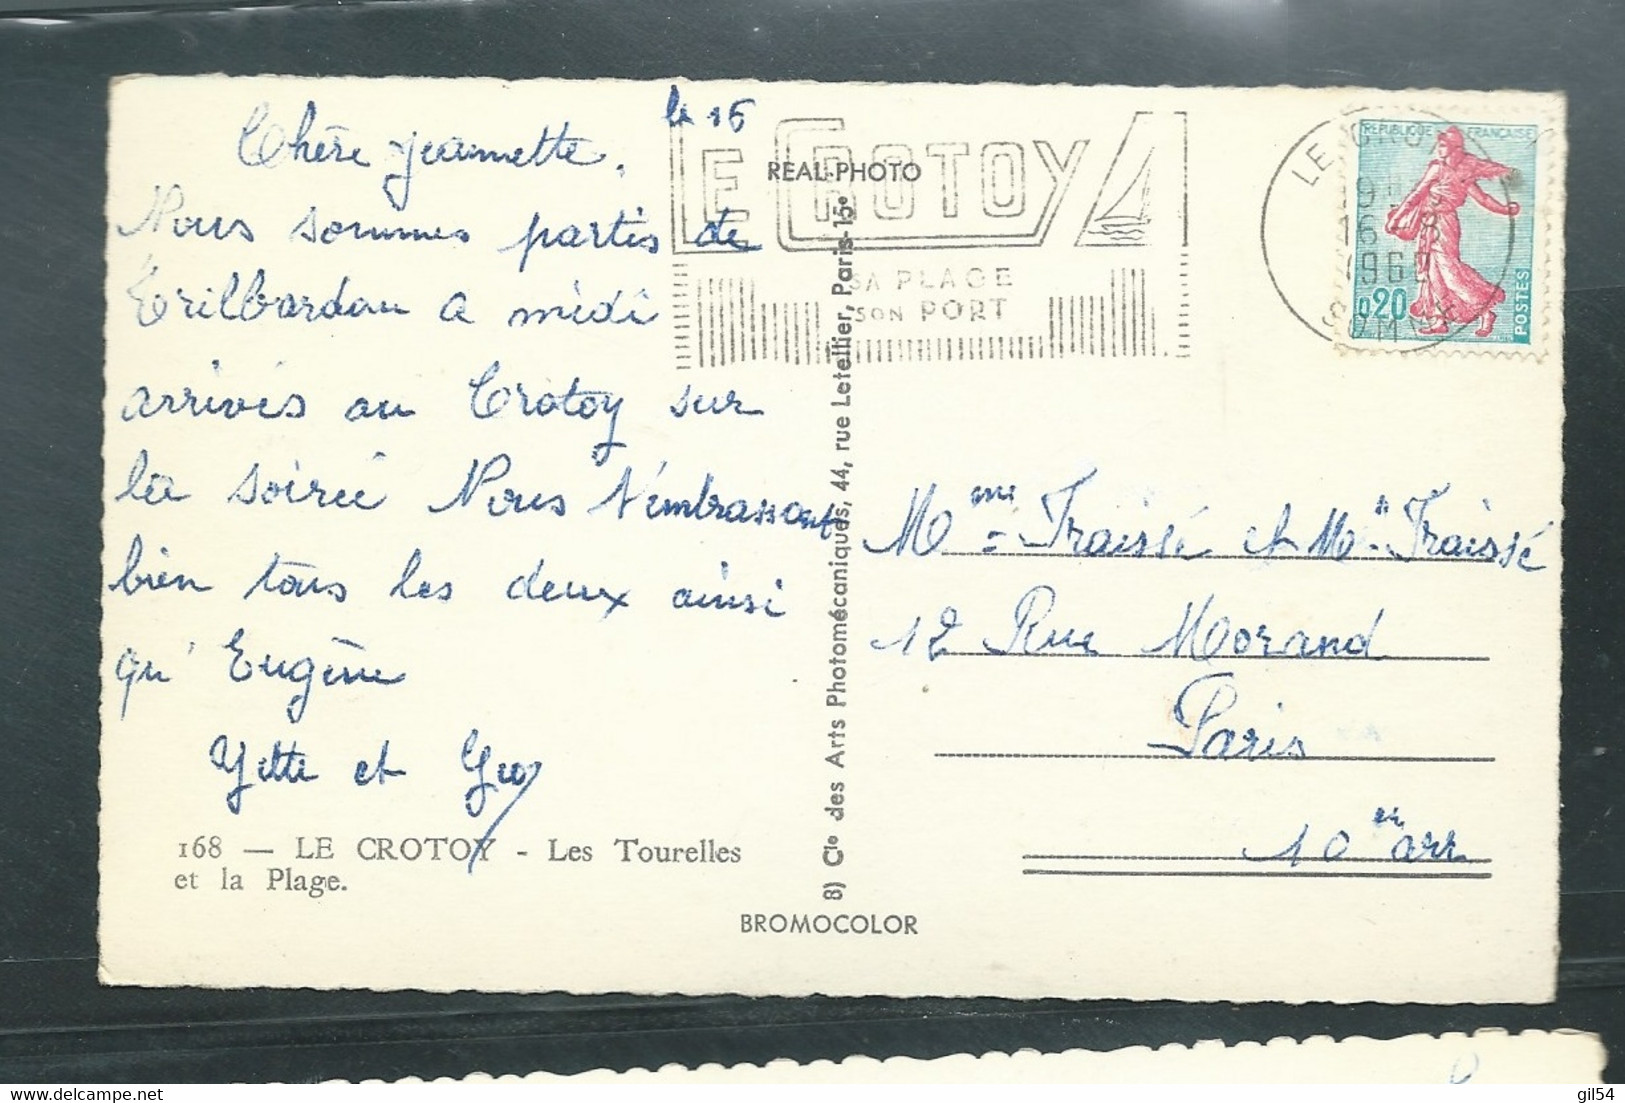 le 16
Chère Jeannette.
Nous sommes partis de
Trilbardou a midi
arrivés au Crotoy sur
la soirée Nous t'embrassons
bien tous les deux ainsi
qu'Eugène
Yette et Géo
168 — LE CROTOY - Les Tourelles
et la Plage.
REAL-PHOTO
8) Cie des Arts Photomécaniques, 44, rue Letellier, Paris-15e
BROMOCOLOR
LE CROTOY
SA PLAGE
SON PORT
LE CROTOY
16 - 8
1960
SOMME
REPUBLIQUE FRANÇAISE
0,20
POSTES
Mme Fraissé et Mr Fraissé
12 Rue Morand
Paris
10 en arr
gil54